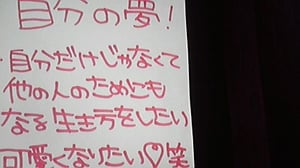 自分の夢!
・自分だけじゃなくて
他の人のためにも
なる生き方をしたい
可愛くなりたい♡笑